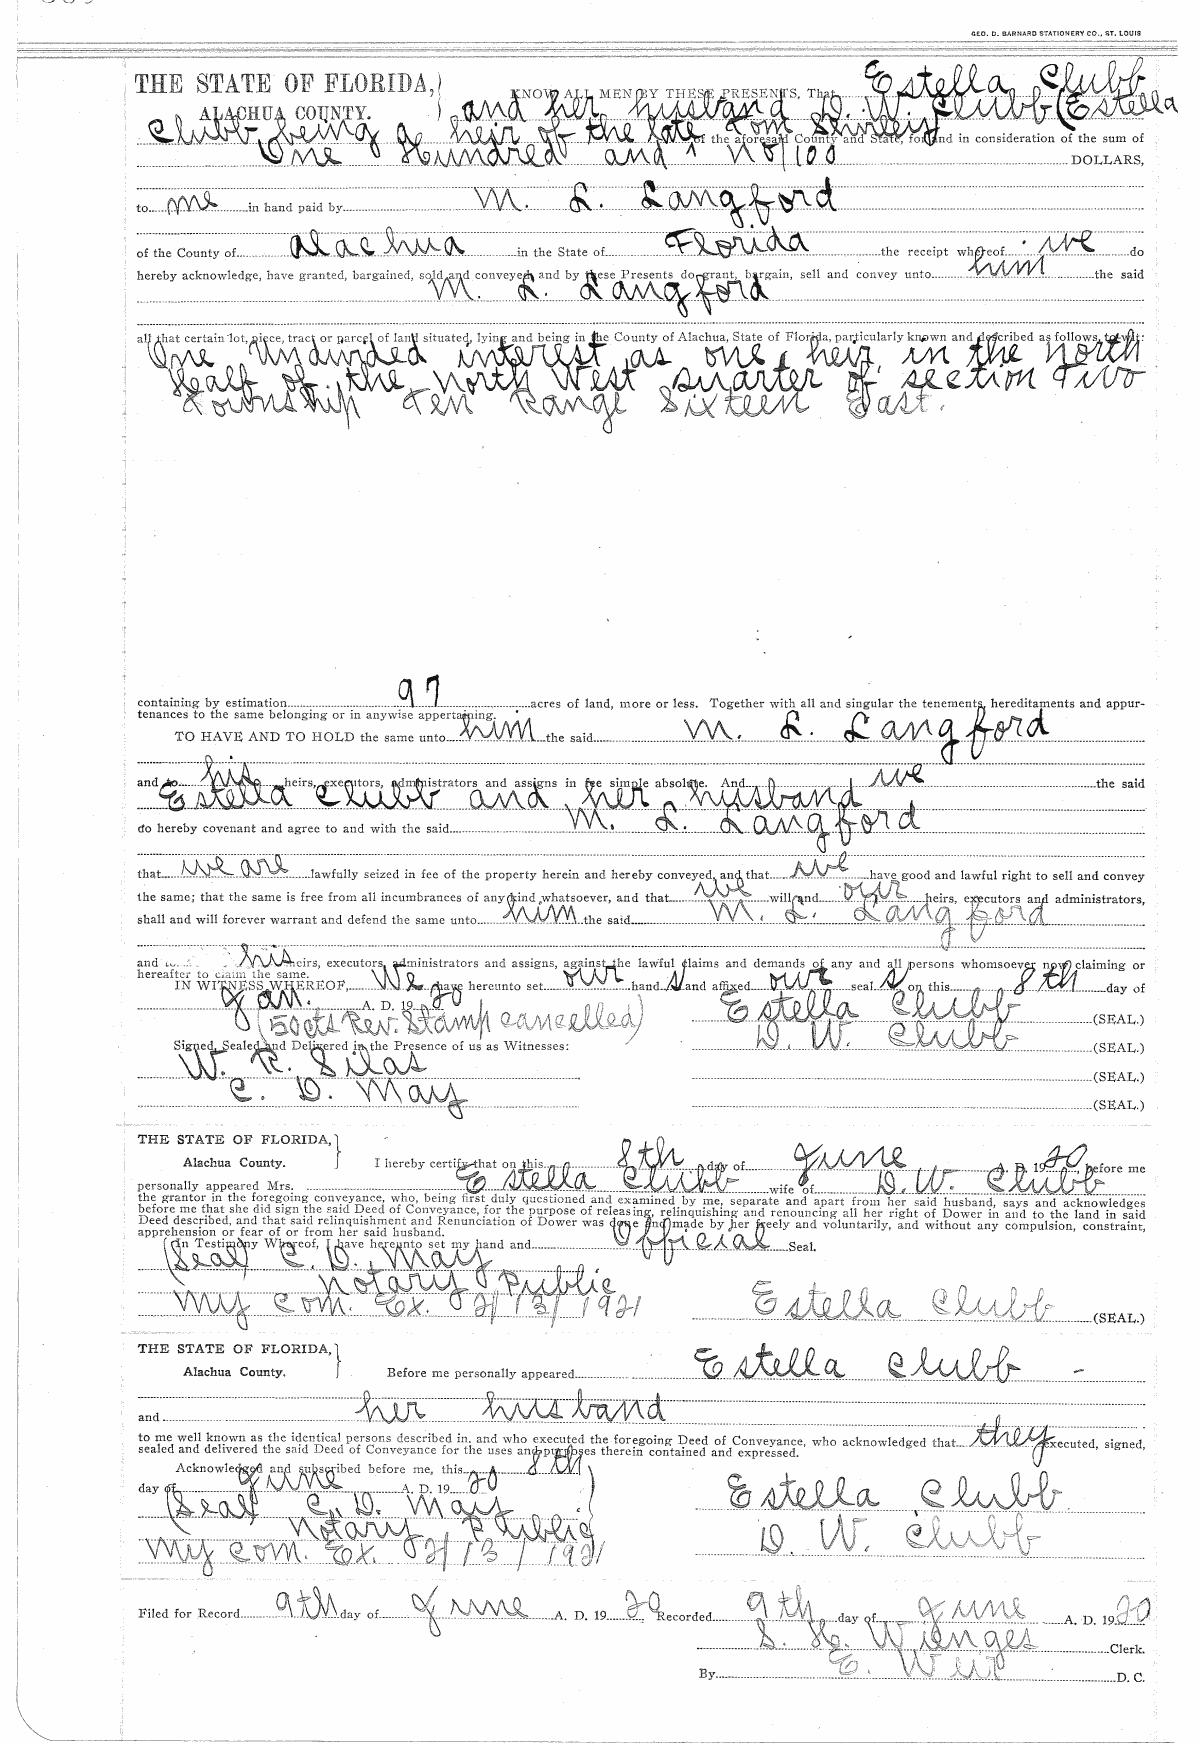 GEO. D. BARNARD STATIONERY CO., ST. LOUIS
THE STATE OF FLORIDA,
ALACHUA COUNTY.
KNOW ALL MEN BY THESE PRESENTS, That Estella Clubb
and her husband D. W. Clubb (Estella
Clubb being a heir of the late Tom Shirley of the aforesaid County and State, for and in consideration of the sum of
One Hundred and No/100 DOLLARS,
to me in hand paid by M. L. Langford
of the County of Alachua in the State of Florida the receipt whereof we do
hereby acknowledge, have granted, bargained, sold and conveyed and by these Presents do grant, bargain, sell and convey unto him the said
M. L. Langford
all that certain lot, piece, tract or parcel of land situated, lying and being in the County of Alachua, State of Florida, particularly known and described as follows, to-wit:
One Undivided interest as one heir in the North
Half of the North West quarter of section Two
Township Ten Range Sixteen East.
containing by estimation 97 acres of land, more or less. Together with all and singular the tenements, hereditaments and appur-
tenances to the same belonging or in anywise appertaining.
TO HAVE AND TO HOLD the same unto him the said M. L. Langford
and to his heirs, executors, administrators and assigns in fee simple absolute. And we the said
Estella Clubb and her husband
do hereby covenant and agree to and with the said M. L. Langford
that we are lawfully seized in fee of the property herein and hereby conveyed, and that we have good and lawful right to sell and convey
the same; that the same is free from all incumbrances of any kind whatsoever, and that we will and our heirs, executors and administrators,
shall and will forever warrant and defend the same unto him the said M. L. Langford
and to his heirs, executors, administrators and assigns, against the lawful claims and demands of any and all persons whomsoever now claiming or
hereafter to claim the same.
IN WITNESS WHEREOF, We have hereunto set our hand s and affixed our seal s on this 8th day of
Jan. A. D. 19 20 Estella Clubb (SEAL.)
(50cts Rev. Stamp cancelled) D. W. Clubb (SEAL.)
Signed, Sealed and Delivered in the Presence of us as Witnesses:
W. R. Silas (SEAL.)
C. D. May (SEAL.)
THE STATE OF FLORIDA,
Alachua County. I hereby certify that on this 8th day of June A. D. 19 20 before me
personally appeared Mrs. Estella Clubb wife of D. W. Clubb
the grantor in the foregoing conveyance, who, being first duly questioned and examined by me, separate and apart from her said husband, says and acknowledges
before me that she did sign the said Deed of Conveyance, for the purpose of releasing, relinquishing and renouncing all her right of Dower in and to the land in said
Deed described, and that said relinquishment and Renunciation of Dower was done and made by her freely and voluntarily, and without any compulsion, constraint,
apprehension or fear of or from her said husband.
In Testimony Whereof, I have hereunto set my hand and Official Seal.
(Seal) C. D. May
Notary Public
My Com. Ex. 2/13/1921 Estella Clubb (SEAL.)
THE STATE OF FLORIDA,
Alachua County. Before me personally appeared Estella Clubb
and her husband
to me well known as the identical persons described in, and who executed the foregoing Deed of Conveyance, who acknowledged that they executed, signed,
sealed and delivered the said Deed of Conveyance for the uses and purposes therein contained and expressed.
Acknowledged and subscribed before me, this 8th
day of June A. D. 19 20 Estella Clubb
(Seal) C. D. May
Notary Public D. W. Clubb
My Com. Ex. 2/13/1921
Filed for Record 9th day of June A. D. 19 20 Recorded 9th day of June A. D. 19 20
S. H. Wienges Clerk.
By E. Weir D. C.